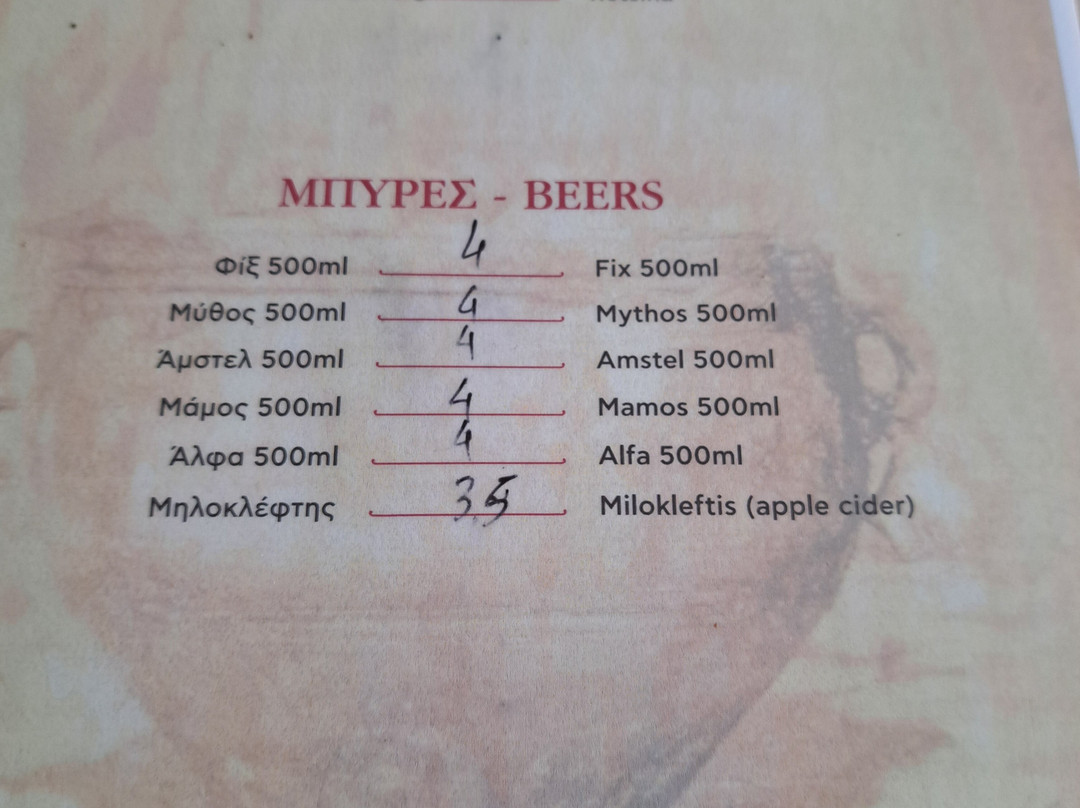 ΜΠΥΡΕΣ - BEERS
Φίξ 500ml 4 Fix 500ml
Μύθος 500ml 4 Mythos 500ml
Άμστελ 500ml 4 Amstel 500ml
Μάμος 500ml 4 Mamos 500ml
Άλφα 500ml 4 Alfa 500ml
Μηλοκλέφτης 3.5 Milokleftis (apple cider)